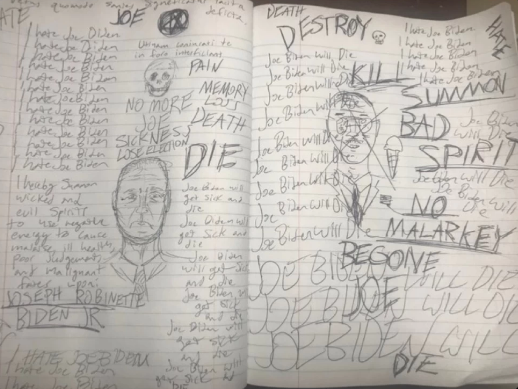 HATE JOE
I hate Joe Biden
I hate Joe Biden
I hate Joe Biden
I hate Joe Biden
I hate Joe Biden
I hate Joe Biden
I hate Joe Biden
I hate Joe Biden
I hate Joe Biden
I hate Joe Biden
I hate Joe Biden
PAIN
MEMORY
LOSS
NO MORE
JOE
DEATH
SICKNESS
LOSE ELECTION
DIE
I hereby Summon
wicked and
evil Spirits
to use negative
energy to cause
malaise, ill health,
Poor Judgement,
and Malignant
fates upon:
JOSEPH ROBINETTE
BIDEN JR
I HATE JOE BIDEN
I hate Joe Biden
I hate Joe Biden
Joe Biden will
get sick and
die
Joe Biden will
get sick and
die
Joe Biden
will get sick
and die
Joe Biden will
get sick
and die
Joe Biden will
get sick
and die
Joe Biden will
get sick
DEATH
DESTROY
Joe Biden Will Die
Joe Biden Will Die
Joe Biden Will Die
Joe Biden Will Die
Joe Biden Will Die
Joe Biden Will Die
Joe Biden Will Die
Joe Biden Will Die
Joe Biden Will Die
Joe Biden Will Die
KILL
I hate Joe Biden
I hate Joe Biden
I hate Joe Biden
I hate Joe Biden
I hate Joe Biden
HATE
SUMMON
BAD
SPIRIT
Joe Biden
Will Die
Joe Biden Will
Die
NO
MALARKEY
BEGONE
JOE
JOE BIDEN WILL DIE
JOE BIDEN WILL DIE
JOE BIDEN WILL
DIE